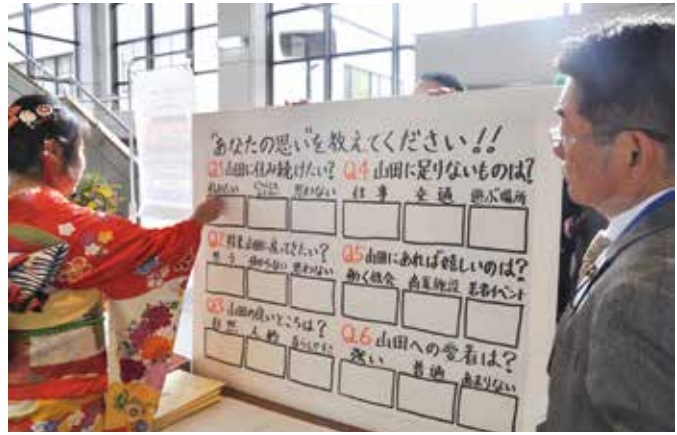 "あなたの思い"を教えてください!!
Q1 山田に住み続けたい?
思わない
Q2 将来山田に戻ってきたい?
思う 分からない 思わない
Q3 山田の良いところは?
自然 人柄 暮らしやすさ
Q4 山田に足りないものは?
仕事 交通 遊ぶ場所
Q5 山田にあれば嬉しいのは?
働く機会 商業施設 若者イベント
Q.6 山田への愛着は?
強い 普通 あまりない